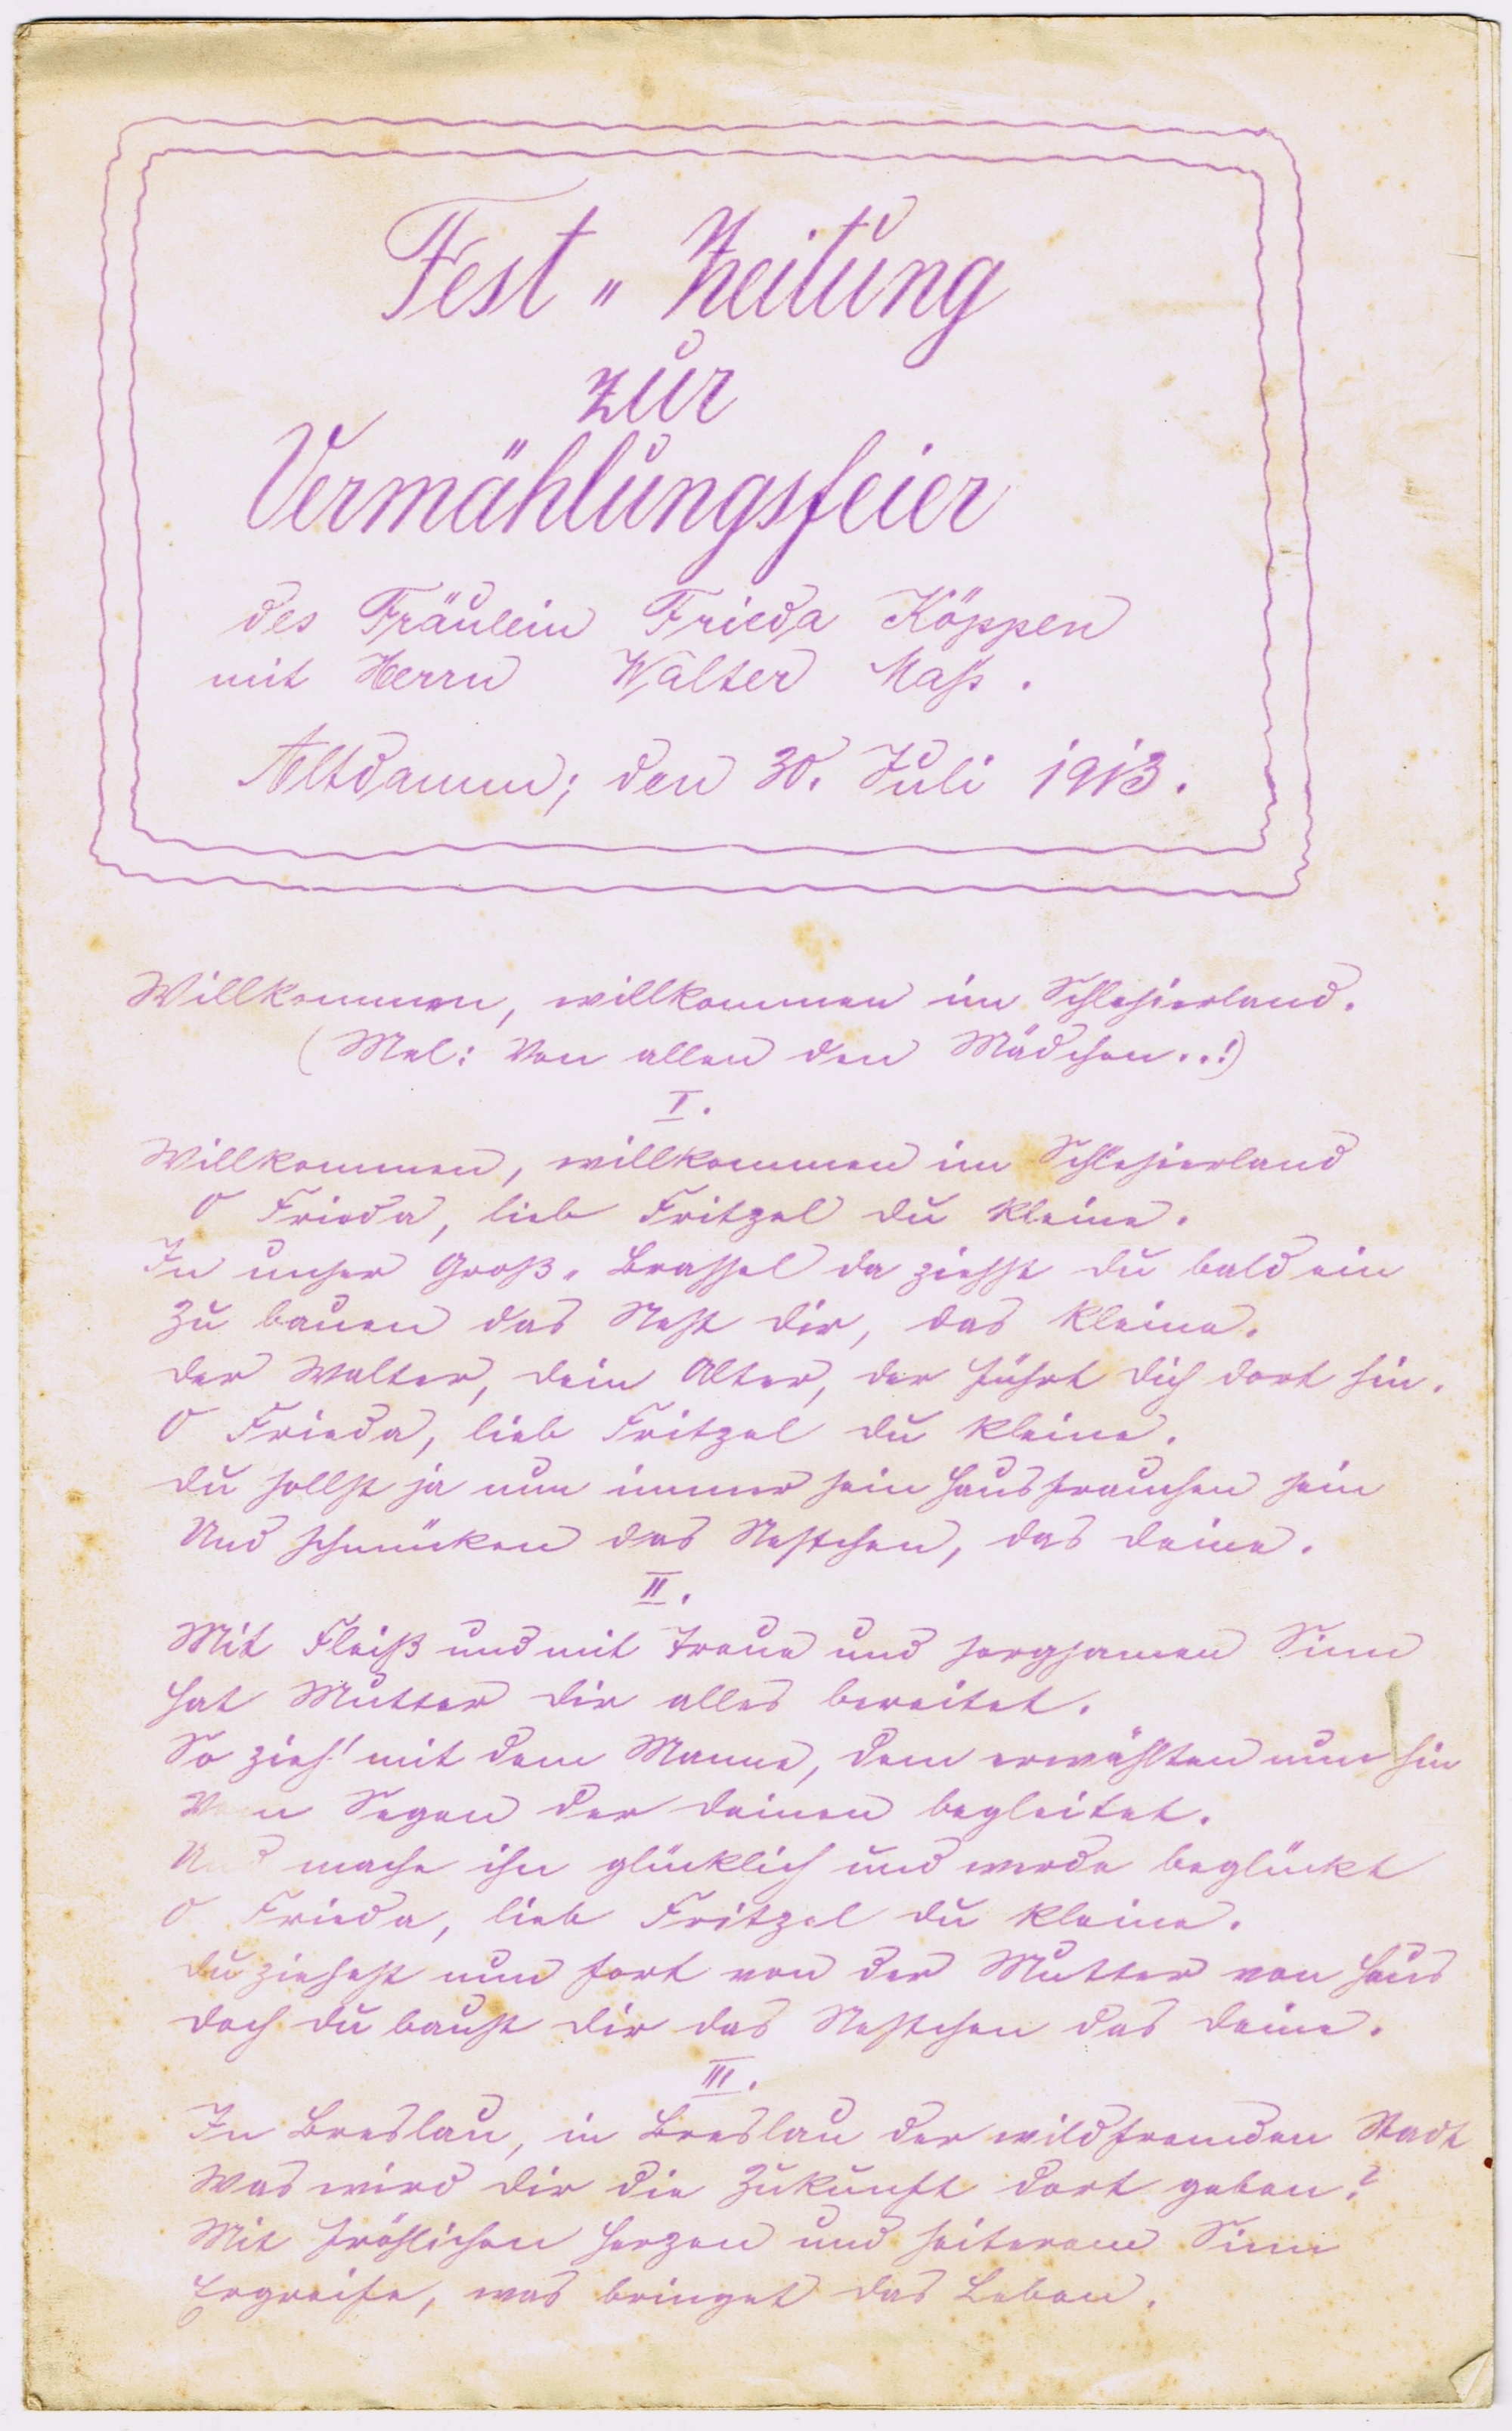 Fest-Zeitung
zur
Vermählungsfeier
des Fräulein Frieda Köppen
mit Herrn Walter Maß.
Altdamm; den 30. Juli 1913.
Willkommen, willkommen im Schlesierland.
(Mel: Von allen den Mädchen..!)
I.
Willkommen, willkommen im Schlesierland
O Frieda, lieb Fritzel du kleine.
In unser Groß-Brassel da ziehst du bald ein
Zu bauen das Nest dir, das kleine.
Der Walter, dein Alter, der führt dich dort hin.
O Frieda, lieb Fritzel du kleine.
Du sollst ja nun immer sein Hausfrauchen sein
Und schmücken das Nestchen, das deine.
II.
Mit Fleiß und mit Treue und sorgsamen Sinn
Hat Mutter dir alles bereitet.
So zieh' mit dem Manne, dem erwählten nun hin
Vom Segen der deinen begleitet.
Und mache ihn glücklich und werde beglückt
O Frieda, lieb Fritzel du kleine.
Du ziehest nun fort von der Mutter von Haus
Doch du baust dir das Nestchen das deine.
III.
In Breslau, in Breslau der wildfremden Stadt
Was wird dir die Zukunft dort geben?
Mit fröhlichen Herzen und heiterem Sinn
Ergreife, was bringet das Leben.